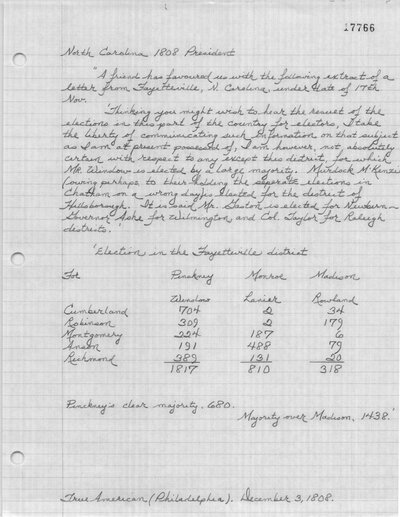 17766
North Carolina 1808 President
"A friend has favoured us with the following extract of a
letter from Fayetteville, N. Carolina under date of 17th
Nov.
'Thinking you might wish to hear the result of the
elections in this part of the country for electors, I take
the liberty of communicating such information on that subject
as I am at present possessed of, I am however, not, absolutely
certain with respect to any except this district, for which
Mr. Winslow is elected by a large majority. Murdock McKenzie
(owing perhaps to their holding the seperate elections in
Chatham on a wrong day) is elected for the district of
Hillsborough. It is said Mr. Gaston is elected for Newbern—
Governor Ashe for Wilmington and Col. Taylor for Raleigh
destrets.'
'Election in the Fayetteville district
For Pinckney Monroe Madison
Winslow Lanier Rowland
Cumberland 704 2 34
Robinson 309 2 179
Montgomery 224 187 6
Anson 191 488 79
Richmond 389 131 20
1817 810 318
Pinckney's clear majority, 680.
Majority over Madison, 1438.'
True American (Philadelphia). December 3, 1808.